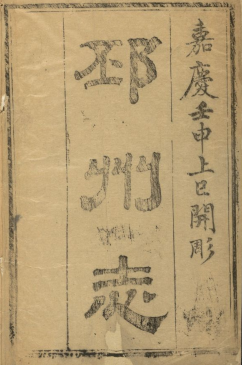 嘉慶壬申上巳開彫
邳州志